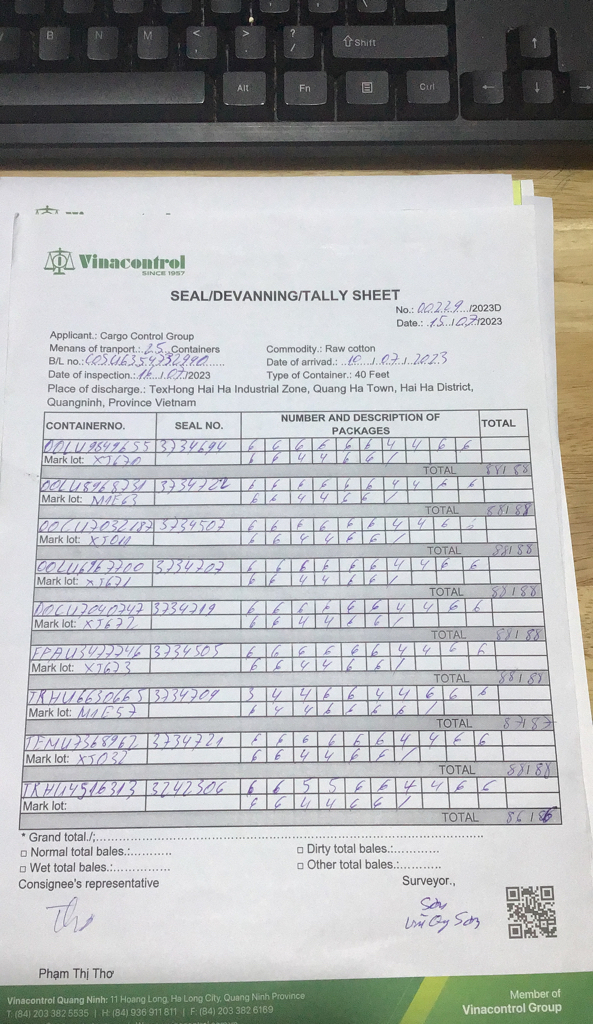 B N M < > ? / ⇧Shift ↑
Alt Fn Ctrl ← ↓
Vinacontrol
SINCE 1957
SEAL/DEVANNING/TALLY SHEET
No.: 00229 /2023D
Date.: 15 / 07 /2023
Applicant.: Cargo Control Group
Menans of tranport.: 25 Containers Commodity.: Raw cotton
B/L no.: COSU6354732990 Date of arrivad.: 10 / 07 / 2023
Date of inspection.: 14 / 07/2023 Type of Container.: 40 Feet
Place of discharge.: TexHong Hai Ha Industrial Zone, Quang Ha Town, Hai Ha District,
Quangninh, Province Vietnam
CONTAINERNO. SEAL NO. NUMBER AND DESCRIPTION OF PACKAGES TOTAL
OOLU9849655 3734694 6 6 6 6 6 6 4 4 6 6
Mark lot: XJ670 6 6 4 4 6 6 /
TOTAL 88/88
OOLU8968731 3734722 6 6 6 6 6 6 4 4 6 6
Mark lot: M1E63 6 6 4 4 6 6 /
TOTAL 88/88
OOCU7032187 3734507 6 6 6 6 6 6 4 4 6 6
Mark lot: XJ011 6 6 4 4 6 6 /
TOTAL 88/88
OOLU6967700 3734707 6 6 6 6 6 6 4 4 6 6
Mark lot: XJ671 6 6 4 4 6 6 /
TOTAL 88/88
OOCU7040747 3734719 6 6 6 6 6 6 4 4 6 6
Mark lot: XJ672 6 6 4 4 6 6 /
TOTAL 88/88
FPAU3477746 3734505 6 6 6 6 6 6 4 4 6 6
Mark lot: XJ673 6 6 4 4 6 6 /
TOTAL 88/88
TRHU6650665 3734709 3 4 4 6 6 4 4 6 6 6
Mark lot: M1E57 6 4 4 6 6 6 /
TOTAL 87/87
TEMU7368962 3734721 6 6 6 6 6 6 4 4 6 6
Mark lot: XJ032 6 6 4 4 6 6 /
TOTAL 88/88
TRHU4516313 3242306 6 6 5 5 6 6 4 4 6 6
Mark lot: 6 6 4 4 6 6 /
TOTAL 86/86
* Grand total./;
□ Normal total bales.: □ Dirty total bales.:
□ Wet total bales.: □ Other total bales.:
Consignee's representative Surveyor.,
Thơ Sơn
Phạm Thị Thơ
Vinacontrol Quang Ninh: 11 Hoang Long, Ha Long City, Quang Ninh Province
T: (84) 203 382 5535 | H: (84) 936 911 811 | F: (84) 203 382 6169
Member of
Vinacontrol Group